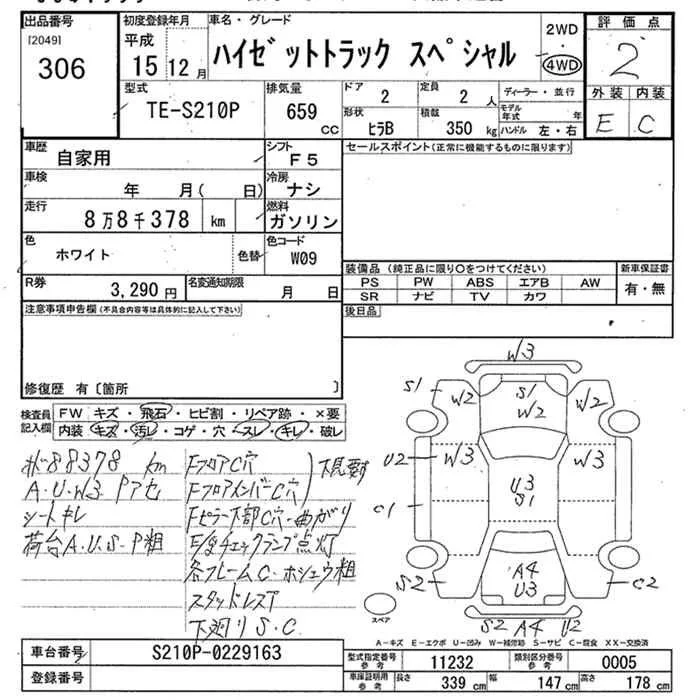 出品番号 初度登録年月 車名・グレード 2WD 評価点
[2049] 平成 ハイゼットトラック スペシャル ・ 2
306 15 12月 4WD
型式 排気量 ドア 定員 ディーラー・並行 外装 内装
TE-S210P 659 CC 2 2 人 モデル年式 年 E C
形状 積載 ハンドル 左・右
ヒラB 350 kg
車歴 シフト セールスポイント(正常に機能するものに限ります)
自家用 F5
車検 年 月( 日) 冷房 ナシ
走行 8万8千378 km 燃料 ガソリン
色 ホワイト 色替 色コード W09
装備品 (純正品に限り○をつけてください) 新車保証書
PS PW ABS エアB AW 有・無
SR ナビ TV カワ
R券 3,290円 名変通知期限 月 日
後日品
注意事項申告欄(不具合内容等は具体的に記入して下さい)
修復歴 有〔箇所 〕
検査員記入欄 FW キズ・飛石・ヒビ割・リペア跡・×要
内装 キズ・汚レ・コゲ・穴・スレ・キレ・破レ
88378 km FフロアC穴 下見要す
A.U.W3 Pアセ FフロアメンバーC穴
シートキレ Fピラー下部C穴・曲がり
荷台A.U.S.P粗 E/gチェックランプ点灯
各フレームC・ホシュウ粗
スタッドレスT
下廻りS.C
W3
S1 W2 S1 W2 W2
U2 W3 U3 S1 W3
C1
S2 A4 U3 C2
S2 A4 U2
スペア
A-キズ E-エクボ U-凹み W-補修跡 S-サビ C-腐食 XX-交換済
車台番号 S210P-0229163
登録番号
型式指定番号 参考 11232 類別区分番号 参考 0005
車庫証明用 参考 長さ 339 cm 幅 147 cm 高さ 178 cm